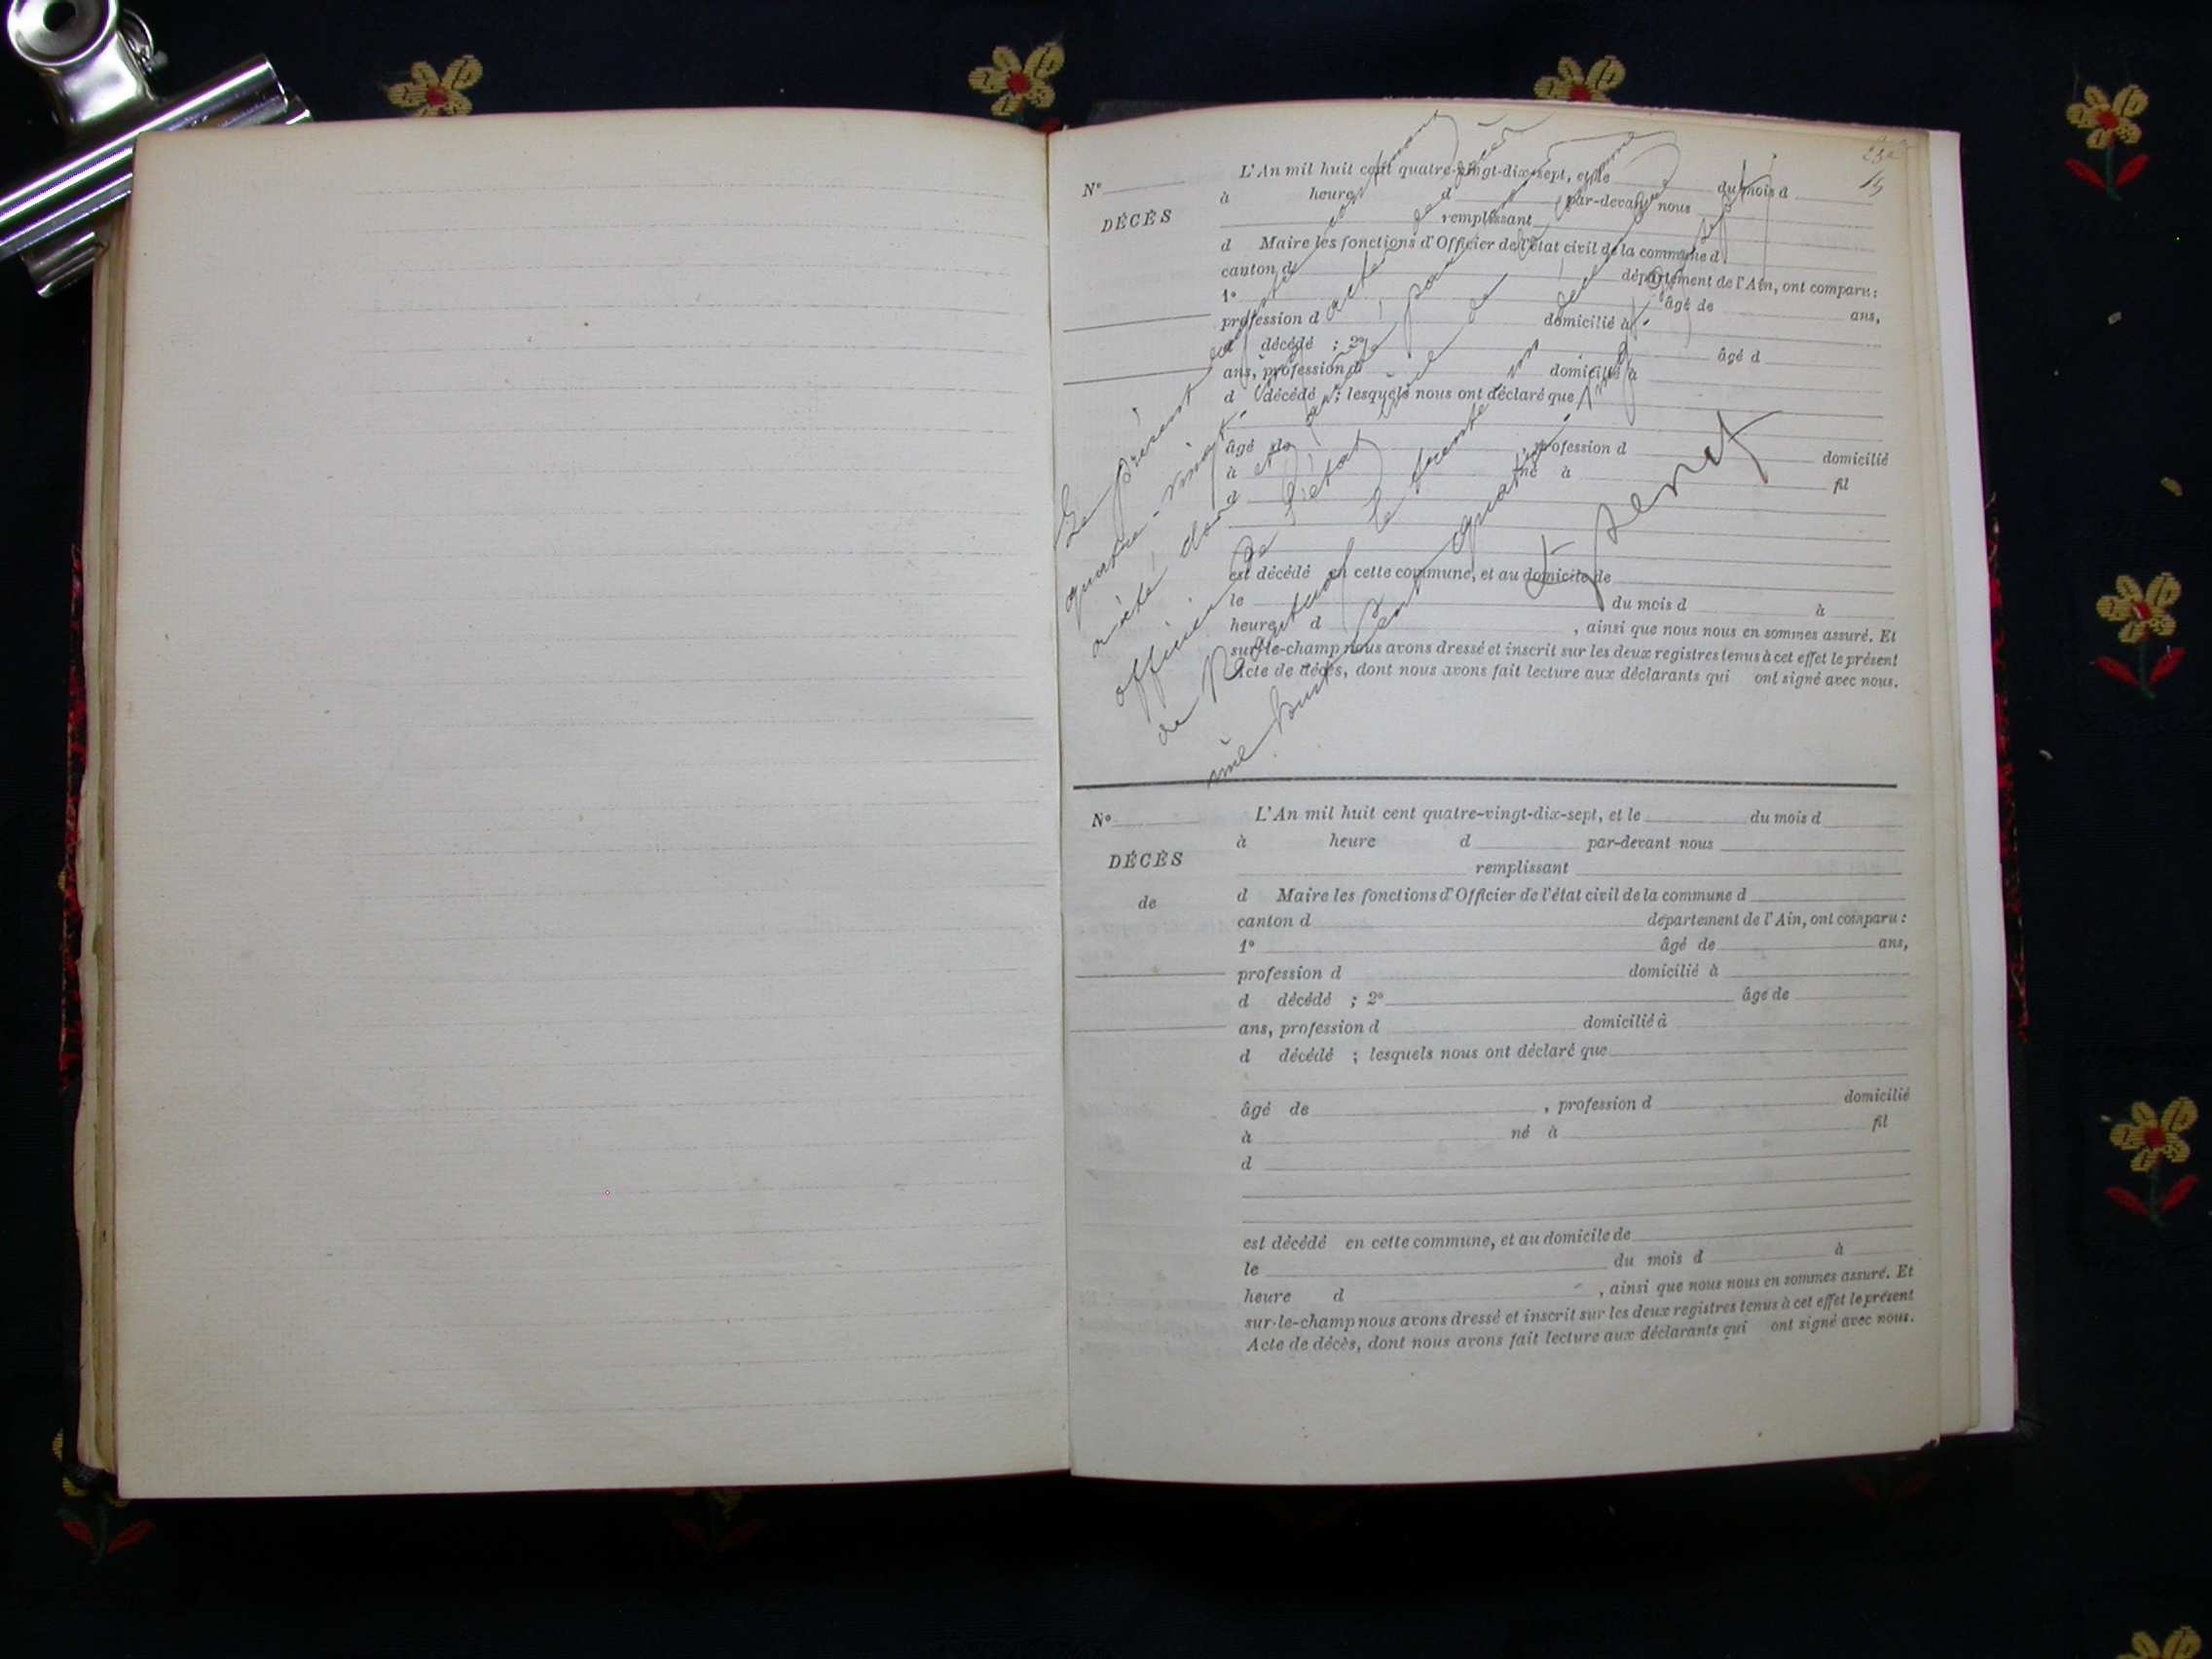 L'An mil huit cent quatre-vingt-dix-sept, et le du mois d
N°
à heure d par-devant nous
DÉCÈS
remplissant
d Maire les fonctions d'Officier de l'état civil de la commune d
canton d département de l'Ain, ont comparu :
1° âgé de ans,
profession d domicilié à
décédé ; 2° âgé d
ans, profession d domicilié à
d décédé ; lesquels nous ont déclaré que
âgé de , profession d domicilié
à né à fil
d
est décédé en cette commune, et au domicile de
le du mois d à
heure d , ainsi que nous nous en sommes assuré. Et
sur-le-champ nous avons dressé et inscrit sur les deux registres tenus à cet effet le présent
Acte de décès, dont nous avons fait lecture aux déclarants qui ont signé avec nous.
Le présent registre
quatre-vingt actes de décès
a été clos et par
officier de l'état civil de la commune
de Nantua le trente un décembre
mil huit cent quatre vingt dix sept
L'An mil huit cent quatre-vingt-dix-sept, et le du mois d
N°
à heure d par-devant nous
DÉCÈS
remplissant
de
d Maire les fonctions d'Officier de l'état civil de la commune d
canton d département de l'Ain, ont comparu :
1° âgé de ans,
profession d domicilié à
d décédé ; 2° âgé de
ans, profession d domicilié à
d décédé ; lesquels nous ont déclaré que
âgé de , profession d domicilié
à né à fil
d
est décédé en cette commune, et au domicile de
le du mois d à
heure d , ainsi que nous nous en sommes assuré. Et
sur-le-champ nous avons dressé et inscrit sur les deux registres tenus à cet effet le présent
Acte de décès, dont nous avons fait lecture aux déclarants qui ont signé avec nous.